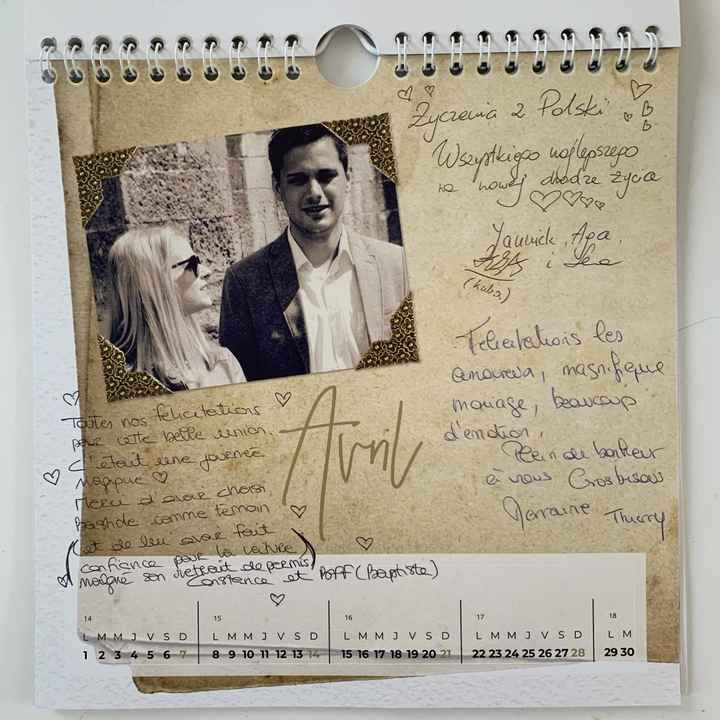 Życzenia z Polski
Wszystkiego najlepszego
na nowej drodze życia
Yannick, Aga,
i Lea
(kuba)
Félicitations les
amoureux, magnifique
mariage, beaucoup
d'émotion,
Plein de bonheur
à vous Gros bisous
Thierry
Toutes nos félicitations
pour cette belle union.
C'était une journée
magique
Merci d'avoir choisi
comme témoin
et de lui avoir fait
confiance pour la voiture
malgré son retrait de permis)
Constance et Poff (Baptiste)
Avril
14 15 16 17 18
L M M J V S D L M M J V S D L M M J V S D L M M J V S D L M
1 2 3 4 5 6 7 8 9 10 11 12 13 14 15 16 17 18 19 20 21 22 23 24 25 26 27 28 29 30